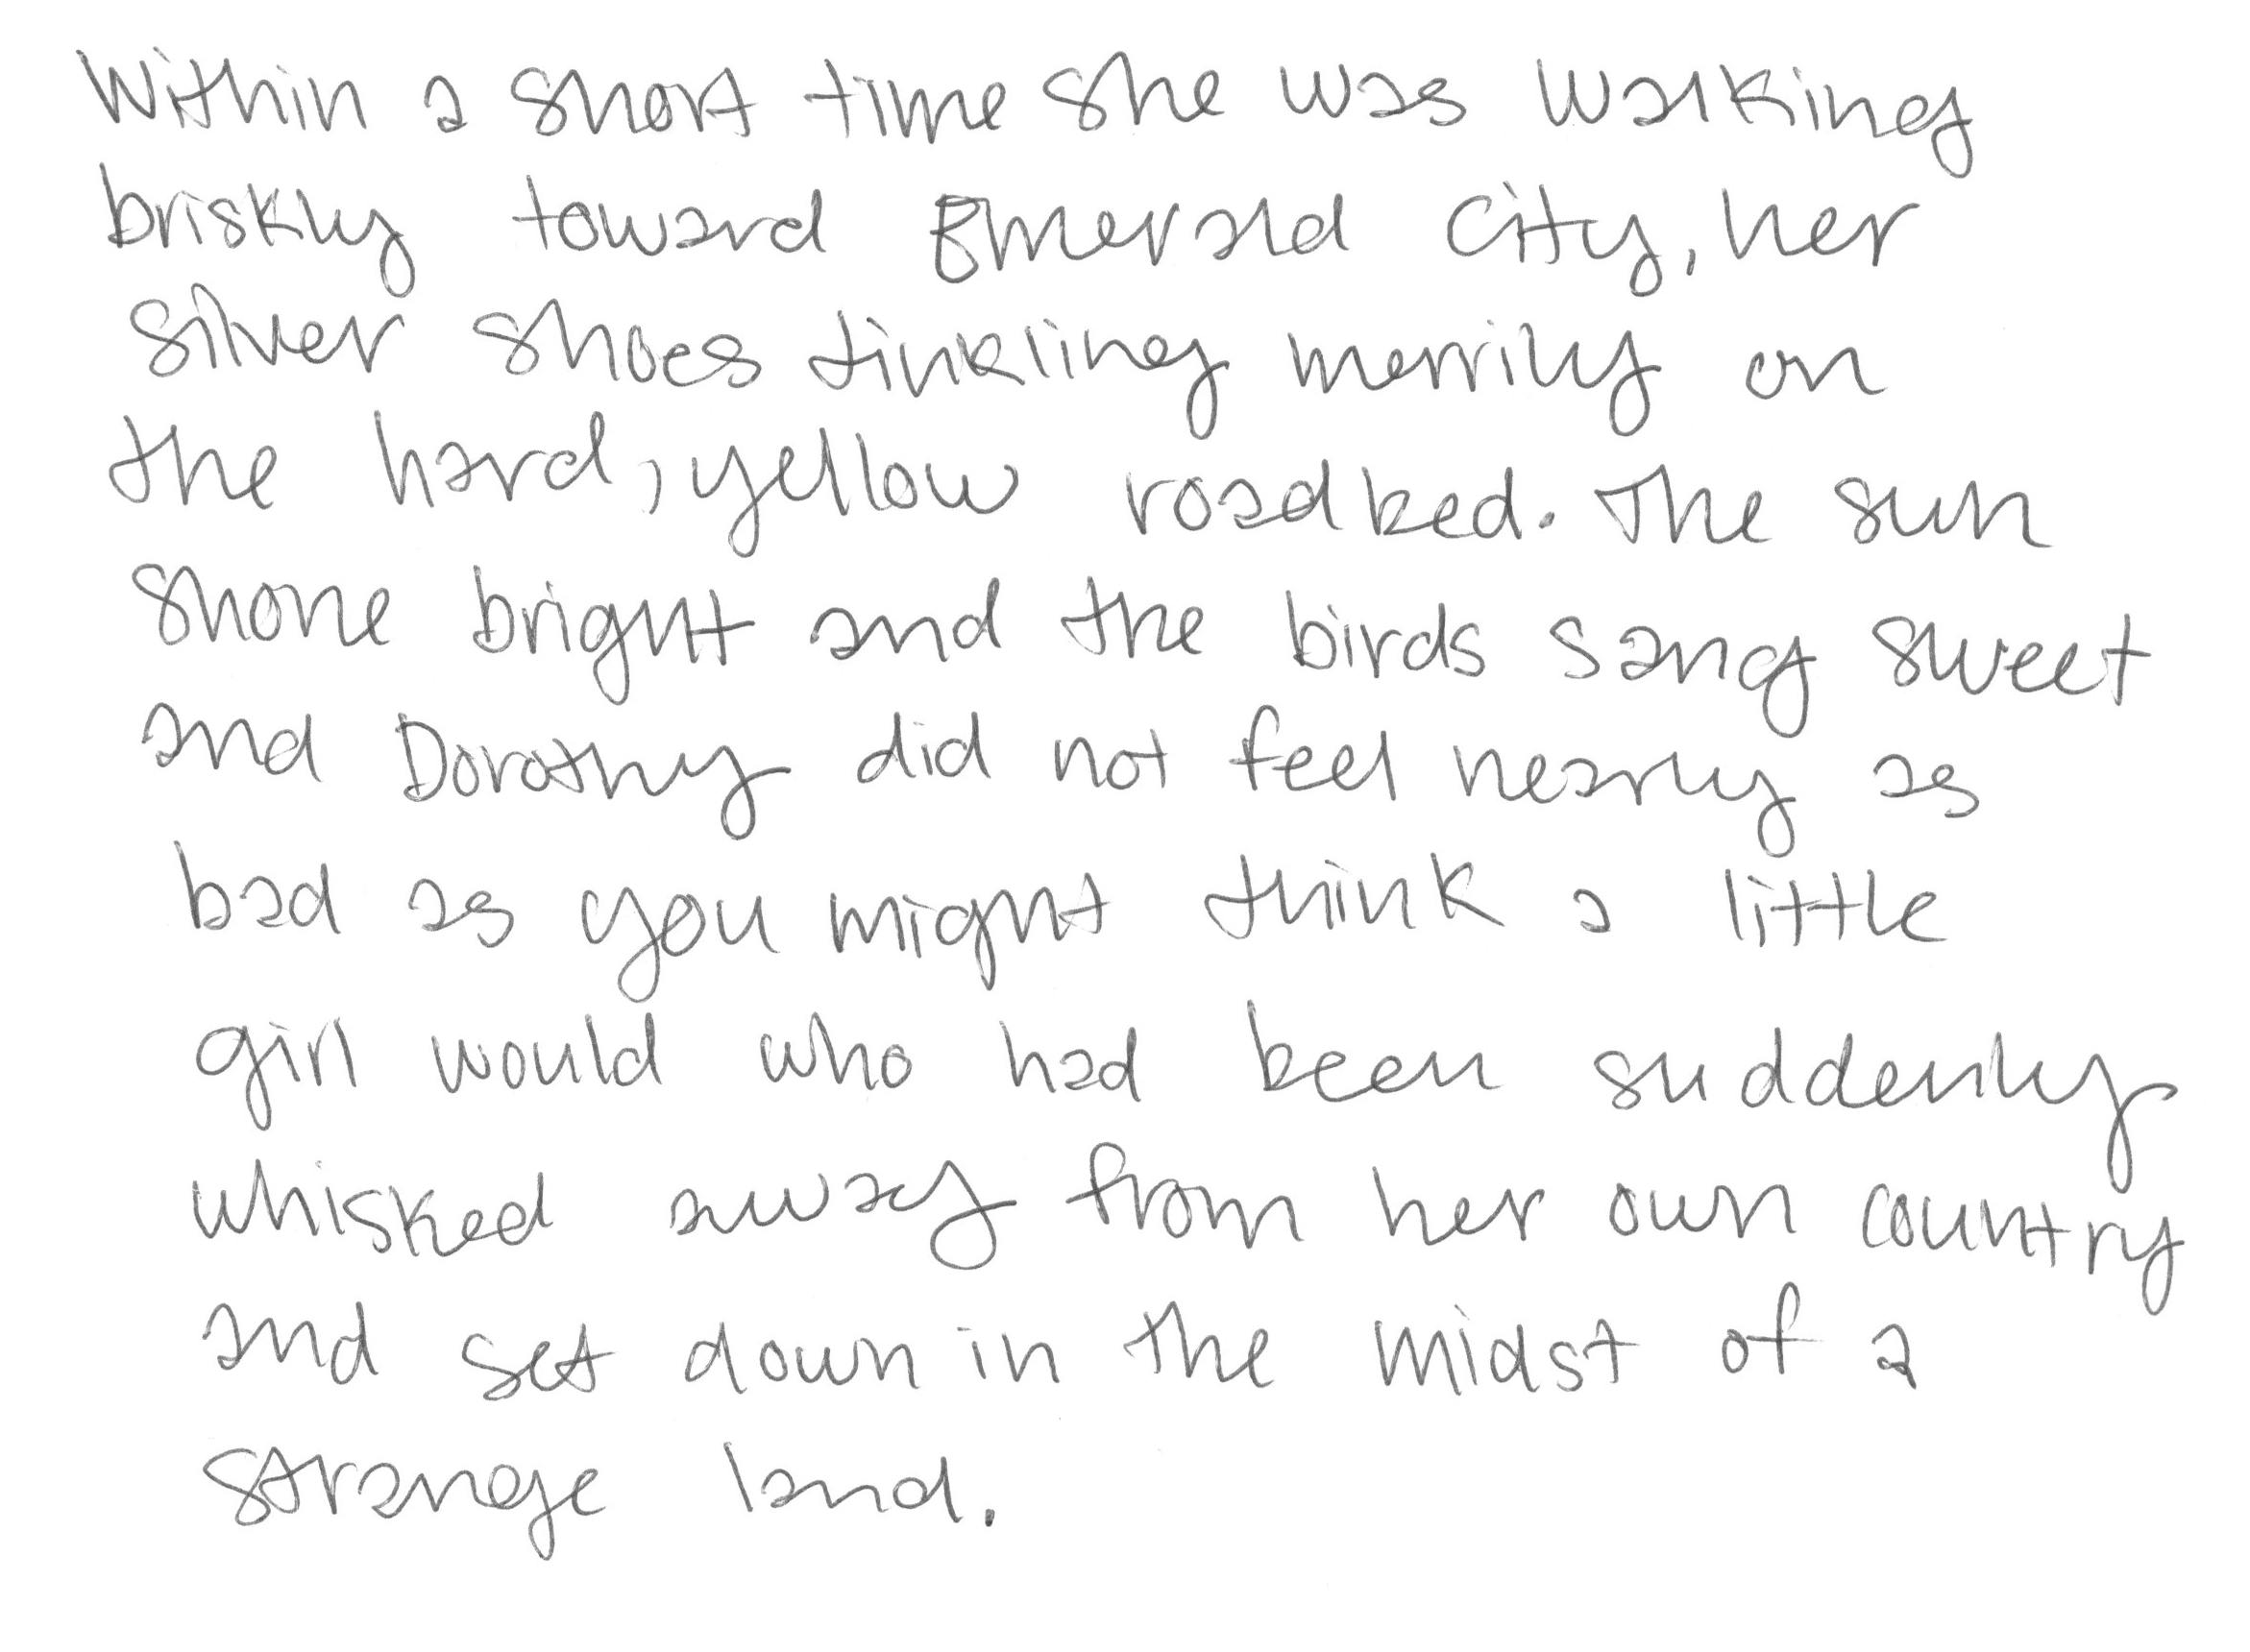 Within a short time she was walking
briskly toward Emerald City, her
silver shoes tinkling merrily on
the hard, yellow roadbed. The sun
shone bright and the birds sang sweet
and Dorothy did not feel nearly as
bad as you might think a little
girl would who had been suddenly
whisked away from her own country
and set down in the midst of a
strange land.